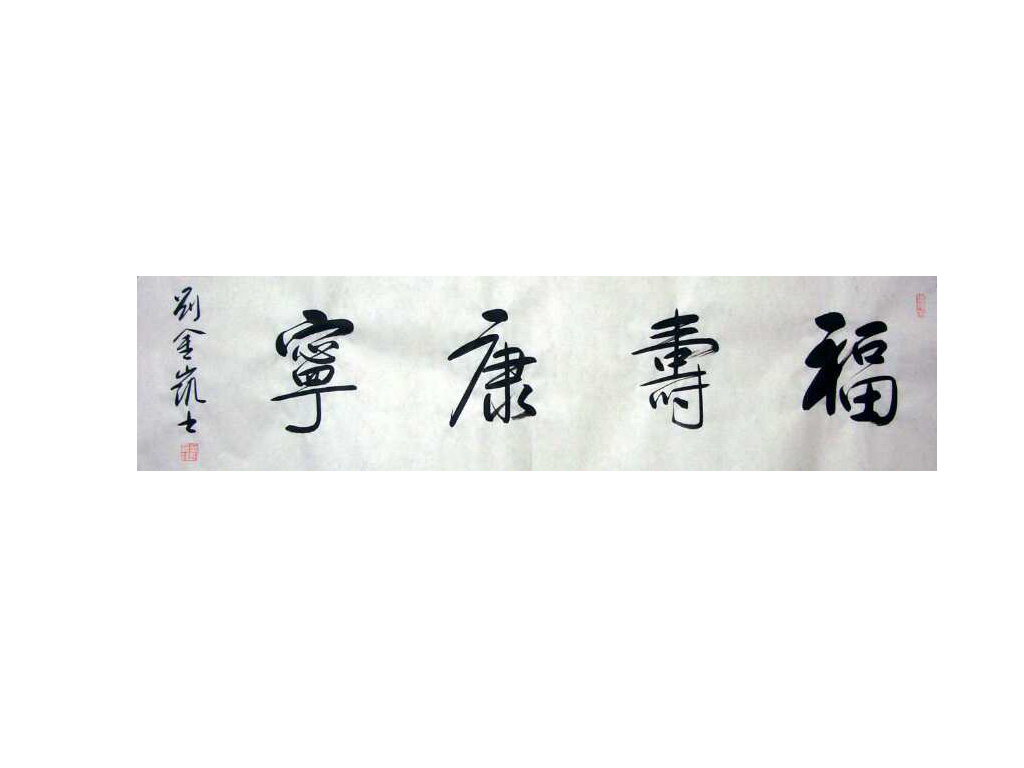 福壽康寧
劉金凱士